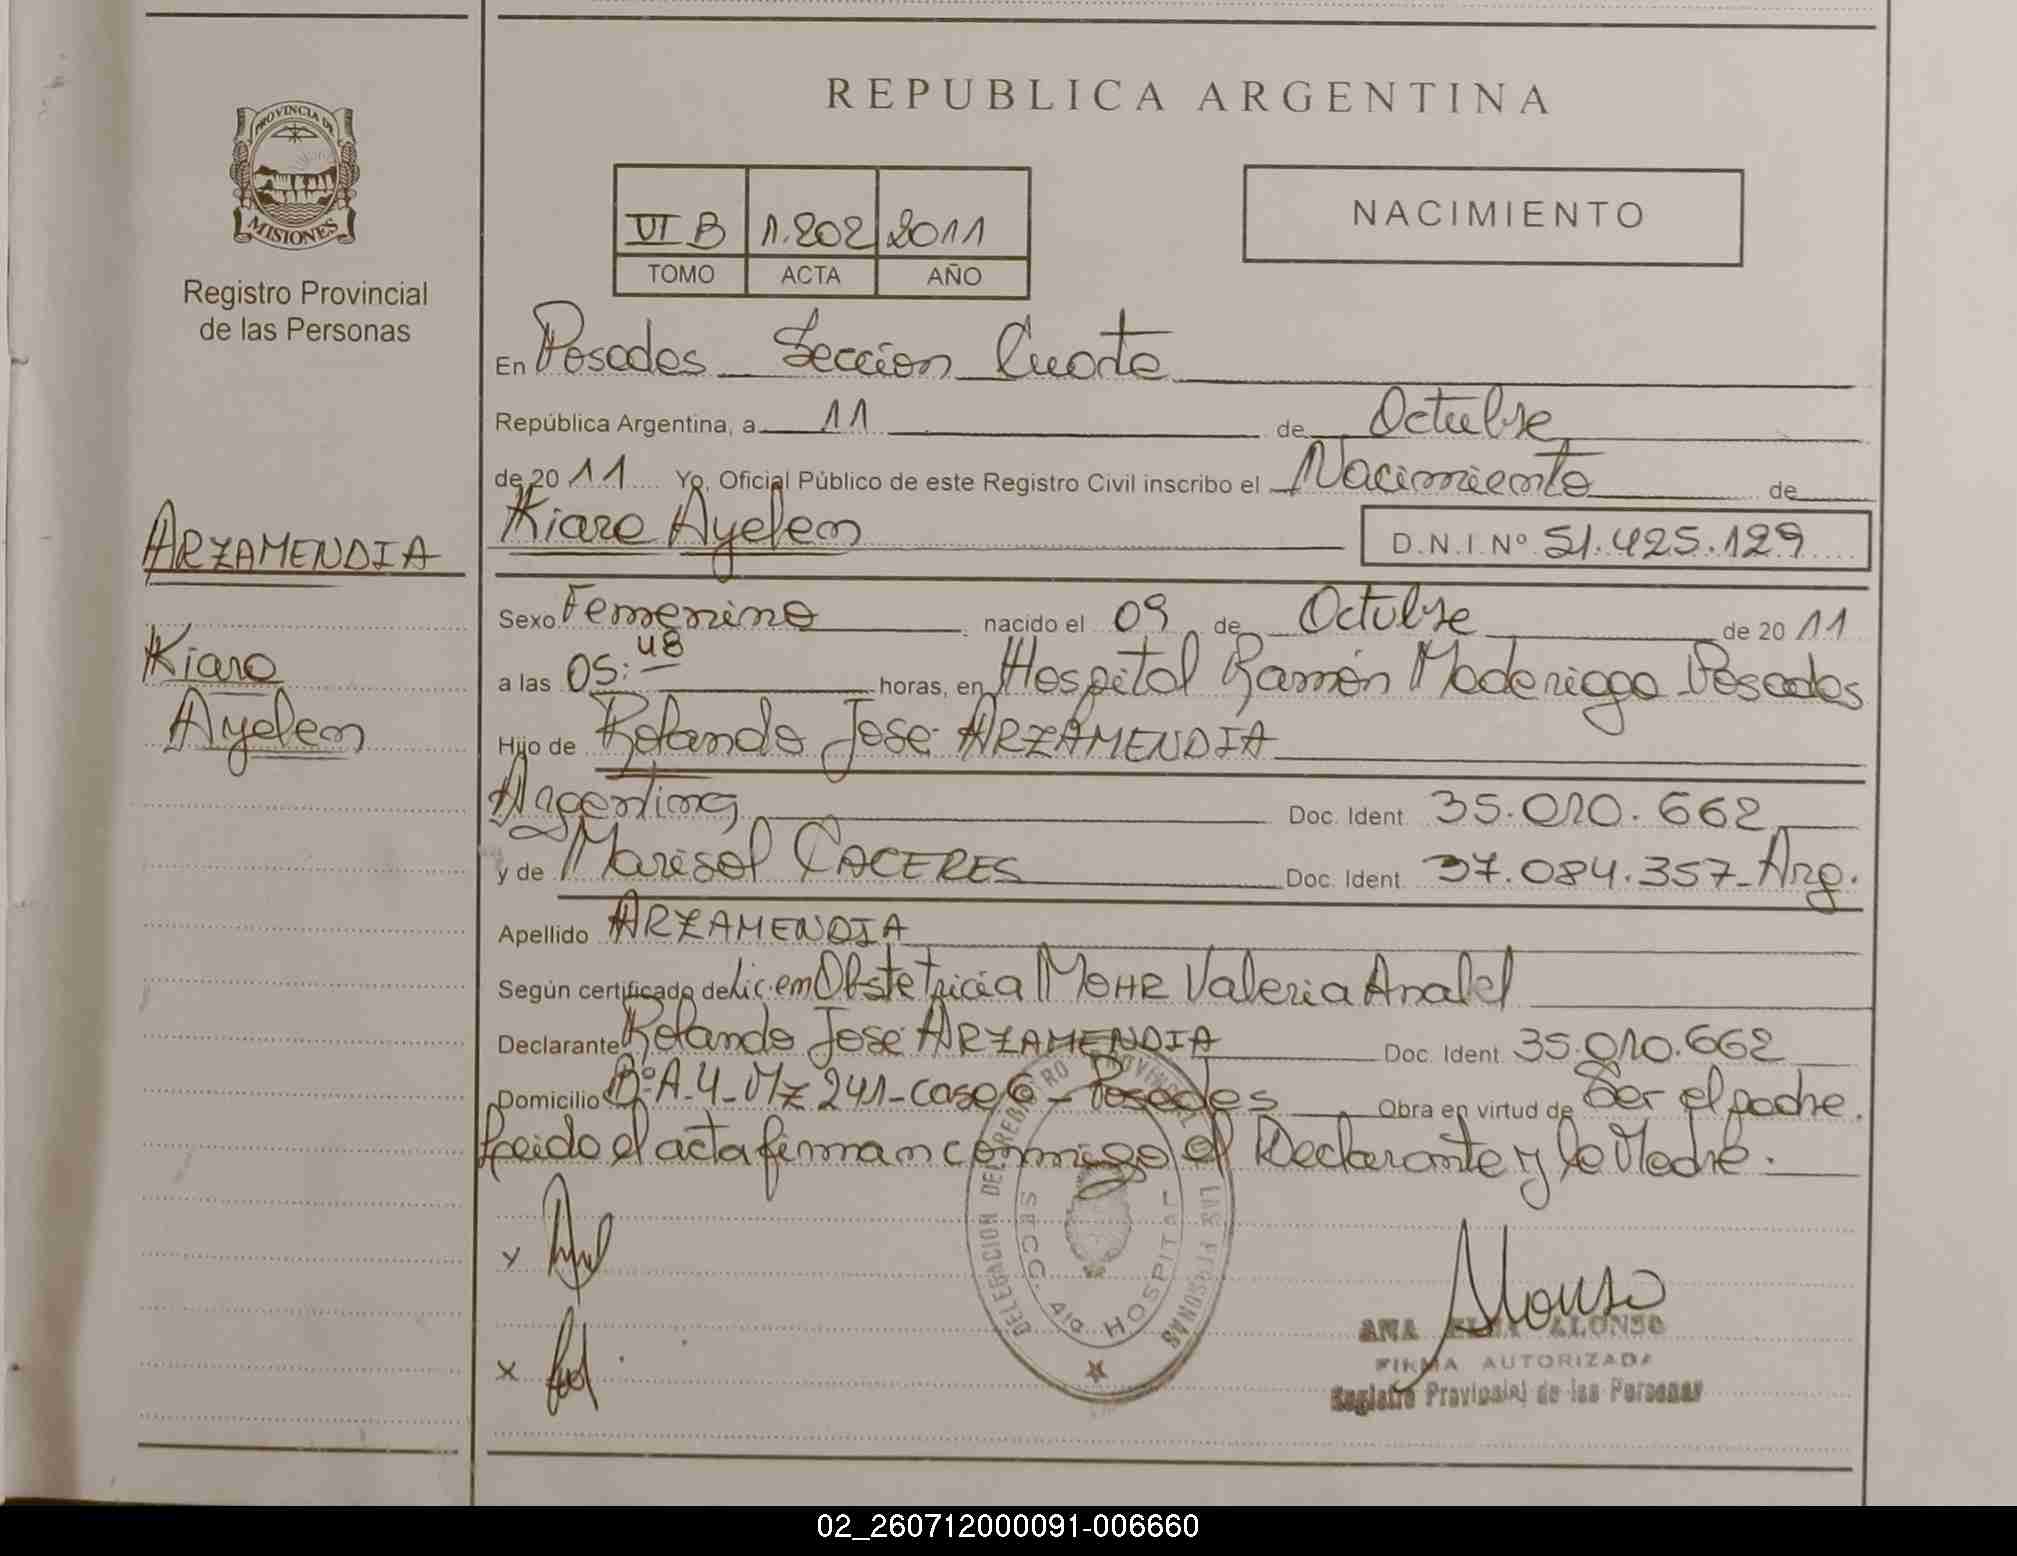 REPUBLICA ARGENTINA
PROVINCIA DE
MISIONES
Registro Provincial
de las Personas
NACIMIENTO
VI B 1.202 2011
TOMO ACTA AÑO
En Posadas Seccion Cuarta
República Argentina, a 11 de Octubre
de 2011 Yo, Oficial Público de este Registro Civil inscribo el Nacimiento de
Kiara Ayelen D.N.I. Nº 51.425.129
ARZAMENDIA
Kiara
Ayelen
Sexo Femenino nacido el 09 de Octubre de 2011
a las 05:48 horas, en Hospital Ramón Madariaga Posadas
Hijo de Rolando Jose ARZAMENDIA
Argentina Doc. Ident. 35.010.662
y de Marisol CACERES Doc. Ident. 37.084.357_Arg.
Apellido ARZAMENDIA
Según certificado de Lic. en Obstetricia MOHR Valeria Anabel
Declarante Rolando Jose ARZAMENDIA Doc. Ident. 35.010.662
Domicilio Bº A-4-Mz 241-casa 6 - Posadas Obra en virtud de Ser el padre.
Leido el acta firman conmigo el Declarante y la Madre.
DELEGACION DEL REGISTRO PROVINCIAL DE LAS PERSONAS
SECC. 4ta. HOSPITAL
Alonso
ANA ALONSO
FIRMA AUTORIZADA
Registro Provincial de las Personas
02_260712000091-006660